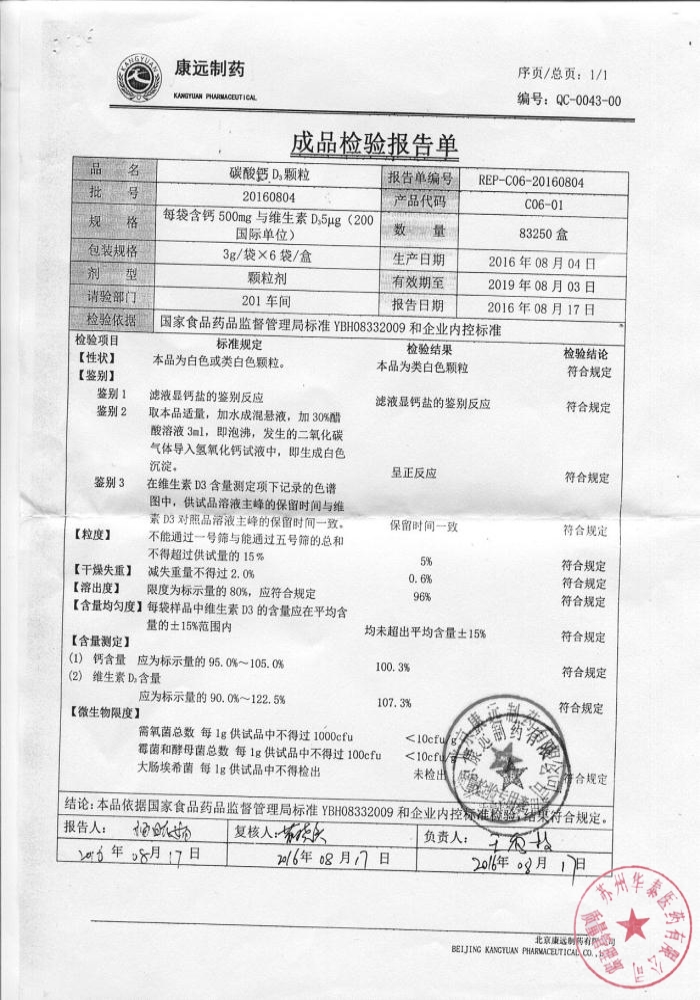 KANGYUAN
康远制药
KANGYUAN PHARMACEUTICAL
序页/总页：1/1
编号：QC-0043-00
成品检验报告单
品 名 碳酸钙 D₃颗粒 报告单编号 REP-C06-20160804
批 号 20160804 产品代码 C06-01
规 格 每袋含钙 500mg 与维生素 D₃5μg（200 国际单位） 数 量 83250 盒
包装规格 3g/袋×6 袋/盒 生产日期 2016 年 08 月 04 日
剂 型 颗粒剂 有效期至 2019 年 08 月 03 日
请验部门 201 车间 报告日期 2016 年 08 月 17 日
检验依据 国家食品药品监督管理局标准 YBH08332009 和企业内控标准
检验项目 标准规定 检验结果 检验结论
【性状】 本品为白色或类白色颗粒。 本品为类白色颗粒 符合规定
【鉴别】
鉴别 1 滤液显钙盐的鉴别反应 滤液显钙盐的鉴别反应 符合规定
鉴别 2 取本品适量，加水成混悬液，加 30%醋
酸溶液 3ml，即泡沸，发生的二氧化碳
气体导入氢氧化钙试液中，即生成白色
沉淀。 呈正反应 符合规定
鉴别 3 在维生素 D3 含量测定项下记录的色谱
图中，供试品溶液主峰的保留时间与维
素 D3 对照品溶液的保留时间一致。 保留时间一致 符合规定
【粒度】 不能通过一号筛与能通过五号筛的总和
不得超过供试量的 15% 5% 符合规定
【干燥失重】 减失重量不得过 2.0% 0.6% 符合规定
【溶出度】 限度为标示量的 80%，应符合规定 96% 符合规定
【含量均匀度】每袋样品中维生素 D3 的含量应在平均含
量的±15%范围内 均未超出平均含量±15% 符合规定
【含量测定】
(1) 钙含量 应为标示量的 95.0%~105.0% 100.3% 符合规定
(2) 维生素 D₃含量
应为标示量的 90.0%~122.5% 107.3% 符合规定
【微生物限度】
需氧菌总数 每 1g 供试品中不得过 1000cfu <10cfu/g
霉菌和酵母菌总数 每 1g 供试品中不得过 100cfu <10cfu/g
大肠埃希菌 每 1g 供试品中不得检出 未检出 符合规定
结论：本品依据国家食品药品监督管理局标准 YBH08332009 和企业内控标准检验，结果符合规定。
报告人： 复核人： 负责人：
2016 年 08月 17 日 2016年 08 月 17 日 2016年 08 月 17日
苏州华泰医药有限公司
北京康远制药有限公司
BEIJING KANGYUAN PHARMACEUTICAL CO.,